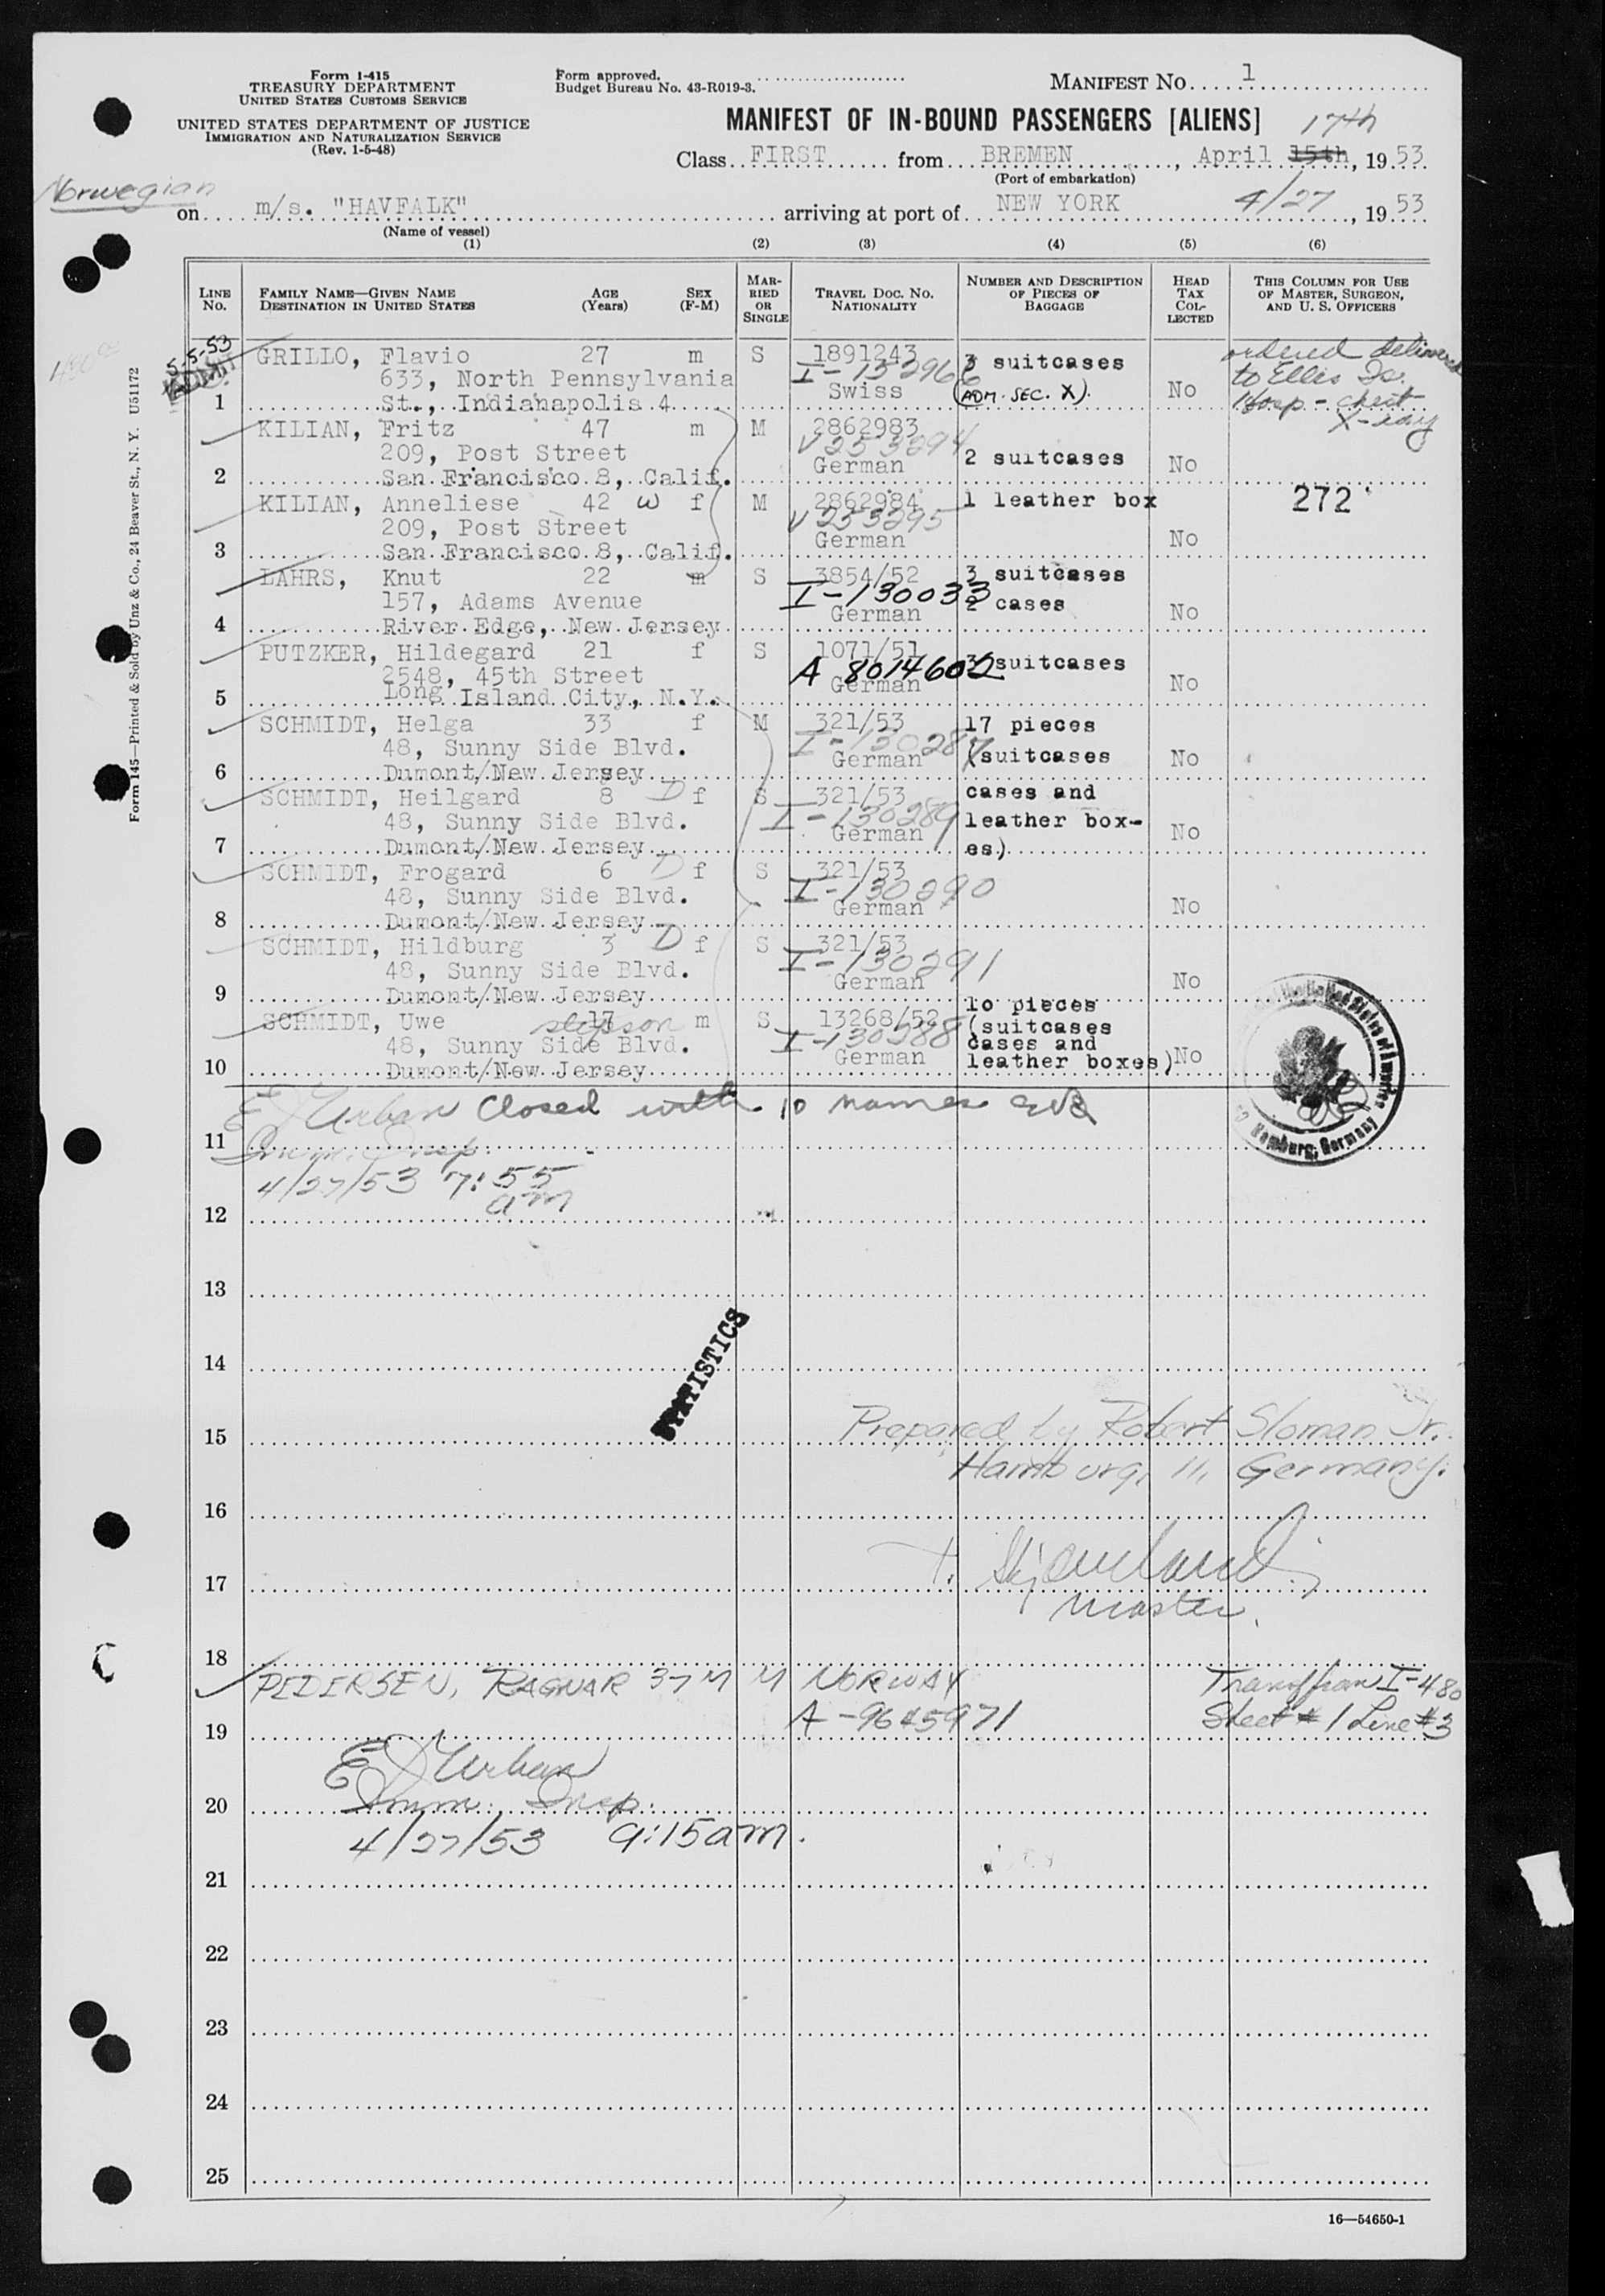 Form 1-415
TREASURY DEPARTMENT
UNITED STATES CUSTOMS SERVICE
UNITED STATES DEPARTMENT OF JUSTICE
IMMIGRATION AND NATURALIZATION SERVICE
(Rev. 1-5-48)
Form approved.
Budget Bureau No. 43-R019-3.
MANIFEST NO. 1
MANIFEST OF IN-BOUND PASSENGERS [ALIENS]
17th
Class FIRST from BREMEN, April 15th, 1953
(Port of embarkation)
Norwegian
on m/s. "HAVFALK" arriving at port of NEW YORK 4/27, 1953
(Name of vessel)
(1) (2) (3) (4) (5) (6)
LINE NO. FAMILY NAME—GIVEN NAME DESTINATION IN UNITED STATES AGE (Years) SEX (F-M) MARRIED OR SINGLE TRAVEL DOC. NO. NATIONALITY NUMBER AND DESCRIPTION OF PIECES OF BAGGAGE HEAD TAX COLLECTED THIS COLUMN FOR USE OF MASTER, SURGEON, AND U. S. OFFICERS
5-5-53
GRILLO, Flavio 27 m S 1891243 3 suitcases ordered delivered
633, North Pennsylvania I-132966 to Ellis Is.
1 St., Indianapolis 4 Swiss (ADM. SEC. X). No Hosp - chest X-ray
KILIAN, Fritz 47 m M 2862983
209, Post Street V253294
2 San Francisco 8, Calif. German 2 suitcases No
KILIAN, Anneliese 42 w f M 2862984 1 leather box 272
209, Post Street V253295
3 San Francisco 8, Calif. German No
LAHRS, Knut 22 m S 3854/52 3 suitcases
157, Adams Avenue I-130033 2 cases
4 River Edge, New Jersey German No
PUTZKER, Hildegard 21 f S 1071/51
2548, 45th Street A 8014602 3 suitcases
5 Long Island City, N.Y. German No
SCHMIDT, Helga 33 f M 321/53 17 pieces
48, Sunny Side Blvd. I-130287
6 Dumont/New Jersey German (suitcases No
SCHMIDT, Heilgard 8 D f S 321/53 cases and
48, Sunny Side Blvd. I-130289 leather box-
7 Dumont/New Jersey German es) No
SCHMIDT, Frogard 6 D f S 321/53
48, Sunny Side Blvd. I-130290
8 Dumont/New Jersey German No
SCHMIDT, Hildburg 3 D f S 321/53
48, Sunny Side Blvd. I-130291
9 Dumont/New Jersey German No
10 pieces
SCHMIDT, Uwe 17 stepson m S 13268/52 (suitcases
48, Sunny Side Blvd. I-130288 cases and
10 Dumont/New Jersey German leather boxes) No
Hamburg, Germany
E J Urban Closed with 10 names
11 Imm. Insp.
4/27/53 7:55 am
12
13
14
STATISTICS
15 Prepared by Robert Sloman Jr.
Hamburg, 11, Germany.
16
17
Master.
18
PEDERSEN, RAGNAR 37 M M NORWAY Transf from I-480
19 A-9645971 Sheet #1 Line #3
E J Urban
20 Imm. Insp.
4/27/53 9:15am.
21
22
23
24
25
16—54650-1
Form 145—Printed & Sold by Unz & Co., 24 Beaver St., N. Y. U51172